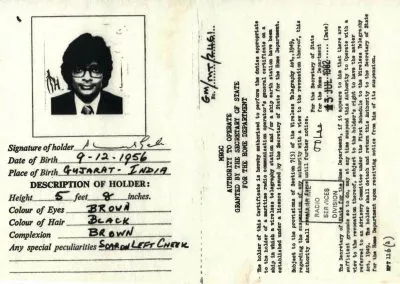 Signature of holder
Date of Birth 9-12-1956
Place of Birth GUJARAT - INDIA
DESCRIPTION OF HOLDER:
Height 5 feet 8 inches.
Colour of Eyes BROWN
Colour of Hair BLACK
Complexion BROWN
Any special peculiarities SCAR ON LEFT CHEEK
MRGC
AUTHORITY TO OPERATE
GRANTED BY THE SECRETARY OF STATE
FOR THE HOME DEPARTMENT
The holder of this Certificate is hereby authorised to perform the duties appropriate
to the holder of a maritime radio communication operator's general certificate on a
ship in which a wireless telegraphy station and/or a ship earth station have been
established under a licence issued by the Secretary of State for the Home Department.
Subject to the provisions of Section 7(1) of the Wireless Telegraphy Act, 1949,
regarding the duration of any authority with a view to the revocation thereof, this
authority shall remain in force until further notice.
For the Secretary of State
for the Home Department
23 JUL 1982 (Date)
RADIO
SERVICES
DIVISION
The Secretary of State for the Home Department, if it appears to him that there are
sufficient grounds so to do, may at any time suspend this authority to Operate with a
view to the revocation thereof, subject to the holder's right to have the matter
referred to an Advisory Committee under the First Schedule to the Wireless Telegraphy
Act, 1949. The holder shall return this Authority to the Secretary of State
for the Home Department upon receiving notice from him of its suspension.